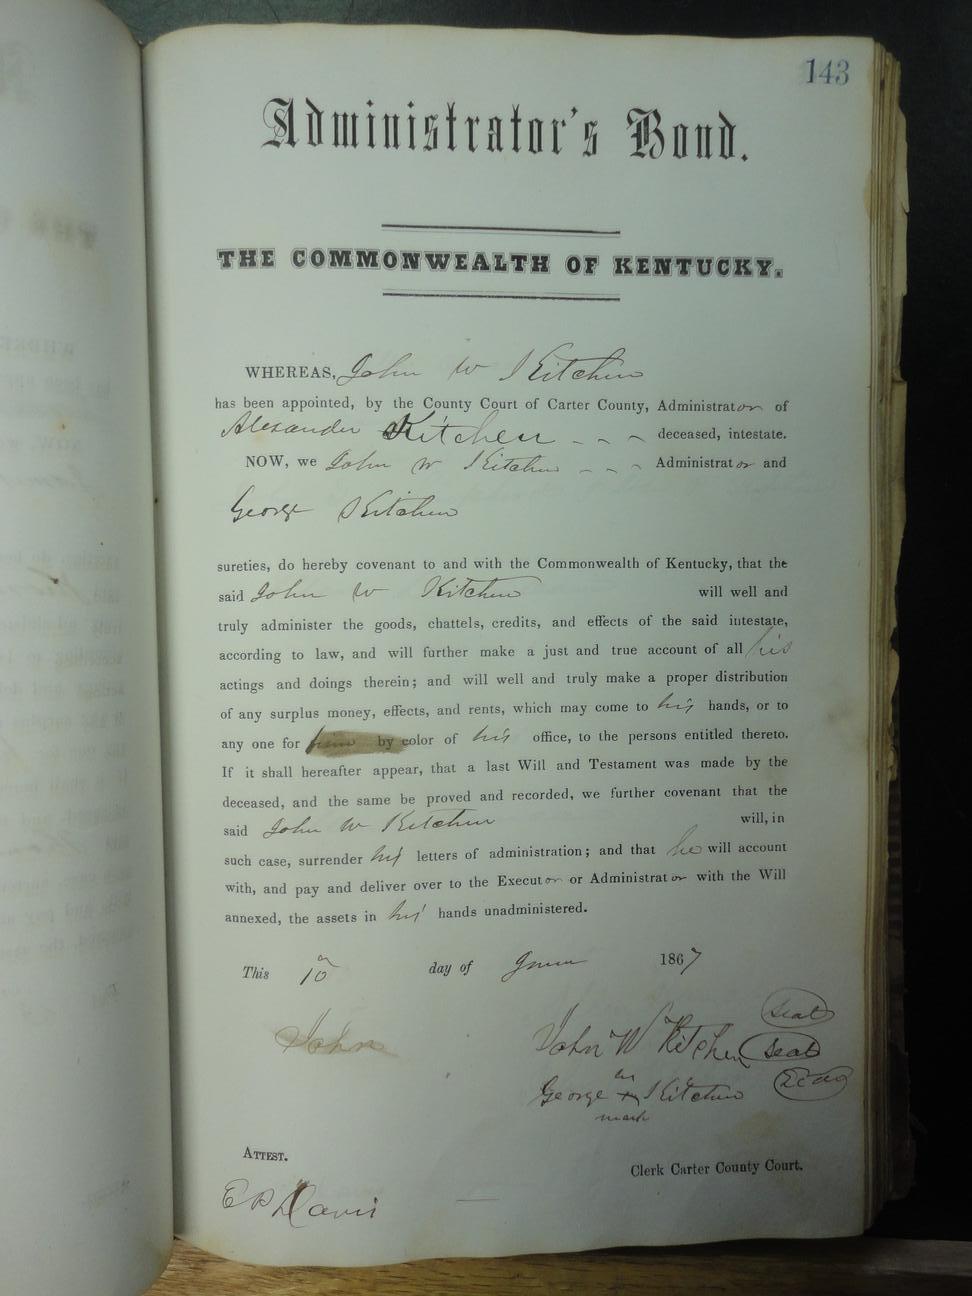 143
Administrator's Bond.
THE COMMONWEALTH OF KENTUCKY.
WHEREAS, John W Kitchen
has been appointed, by the County Court of Carter County, Administrator of
Alexander Kitchen deceased, intestate.
NOW, we John W Kitchen Administrator and
George Kitchen
sureties, do hereby covenant to and with the Commonwealth of Kentucky, that the
said John W Kitchen will well and
truly administer the goods, chattels, credits, and effects of the said intestate,
according to law, and will further make a just and true account of all his
actings and doings therein; and will well and truly make a proper distribution
of any surplus money, effects, and rents, which may come to his hands, or to
any one for him by color of his office, to the persons entitled thereto.
If it shall hereafter appear, that a last Will and Testament was made by the
deceased, and the same be proved and recorded, we further covenant that the
said John W Kitchen will, in
such case, surrender his letters of administration; and that he will account
with, and pay and deliver over to the Executor or Administrator with the Will
annexed, the assets in his hands unadministered.
This 10 day of June 1867
Seal
John John W Kitchen Seal
George his x Kitchen Seal
mark
ATTEST.
Clerk Carter County Court.
E B Davis